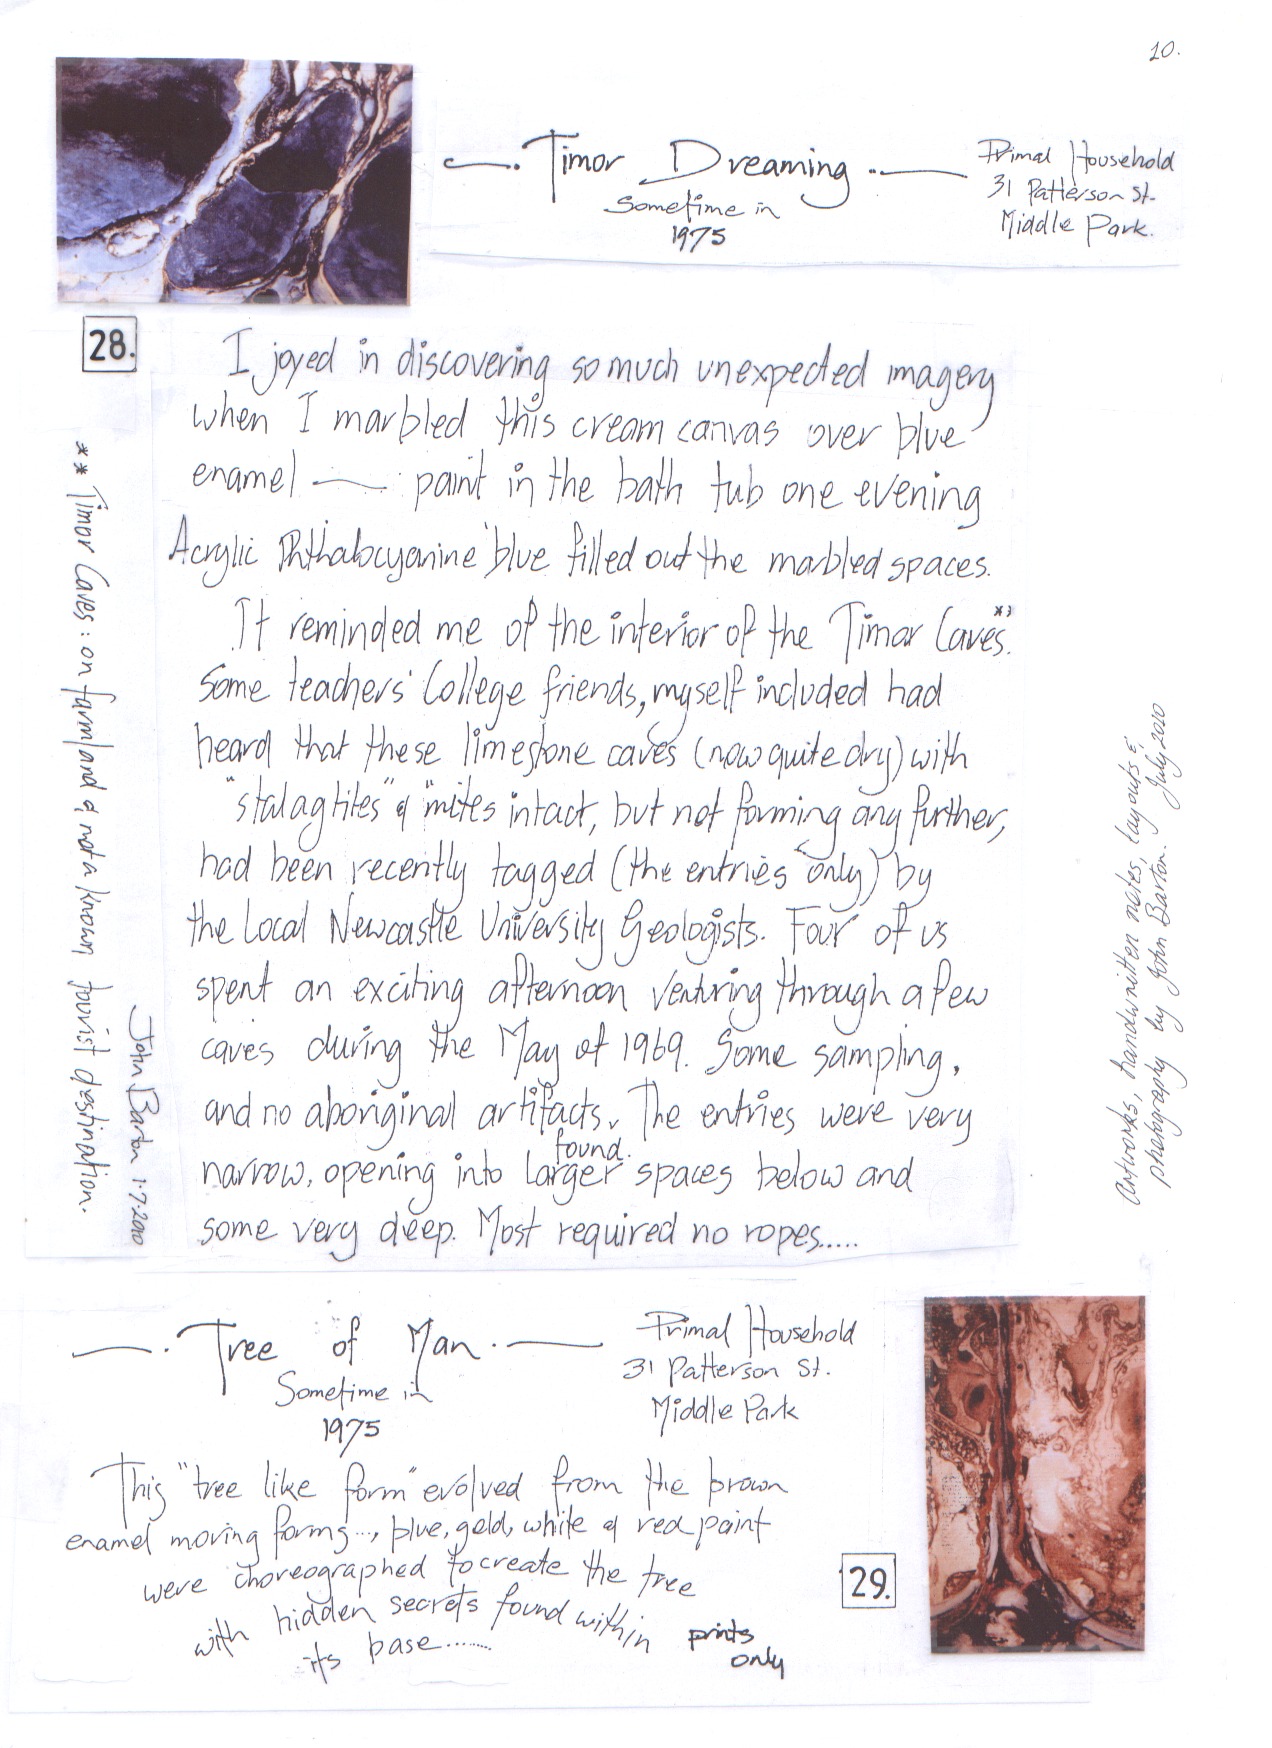 10.
Timor Dreaming
Sometime in
1975
Primal Household
31 Patterson St.
Middle Park.
28.
I joyed in discovering so much unexpected imagery
when I marbled this cream canvas over blue
enamel — paint in the bath tub one evening
Acrylic Phthalocyanine blue filled out the marbled spaces.
It reminded me of the interior of the Timor Caves.**
Some teachers' College friends, myself included had
heard that these limestone caves (now quite dry) with
"stalagtites" & "mites intact, but not forming any further,
had been recently tagged (the entries only) by
the Local Newcastle University Geologists. Four of us
spent an exciting afternoon venturing through a few
caves during the May of 1969. Some sampling,
and no aboriginal artifacts. The entries were very
found.
narrow, opening into larger spaces below and
some very deep. Most required no ropes.....
** Timor Caves: on farmland & not a known tourist destination.
John Barton 1·7·2010
Artworks, handwritten notes, layouts &
photography by John Barton. July, 2010
Tree of Man
Sometime in
1975
Primal Household
31 Patterson St.
Middle Park
This "tree like form" evolved from the brown
enamel moving forms..., blue, gold, white & red paint
were choreographed to create the tree
with hidden secrets found within
its base.......
prints
only
29.